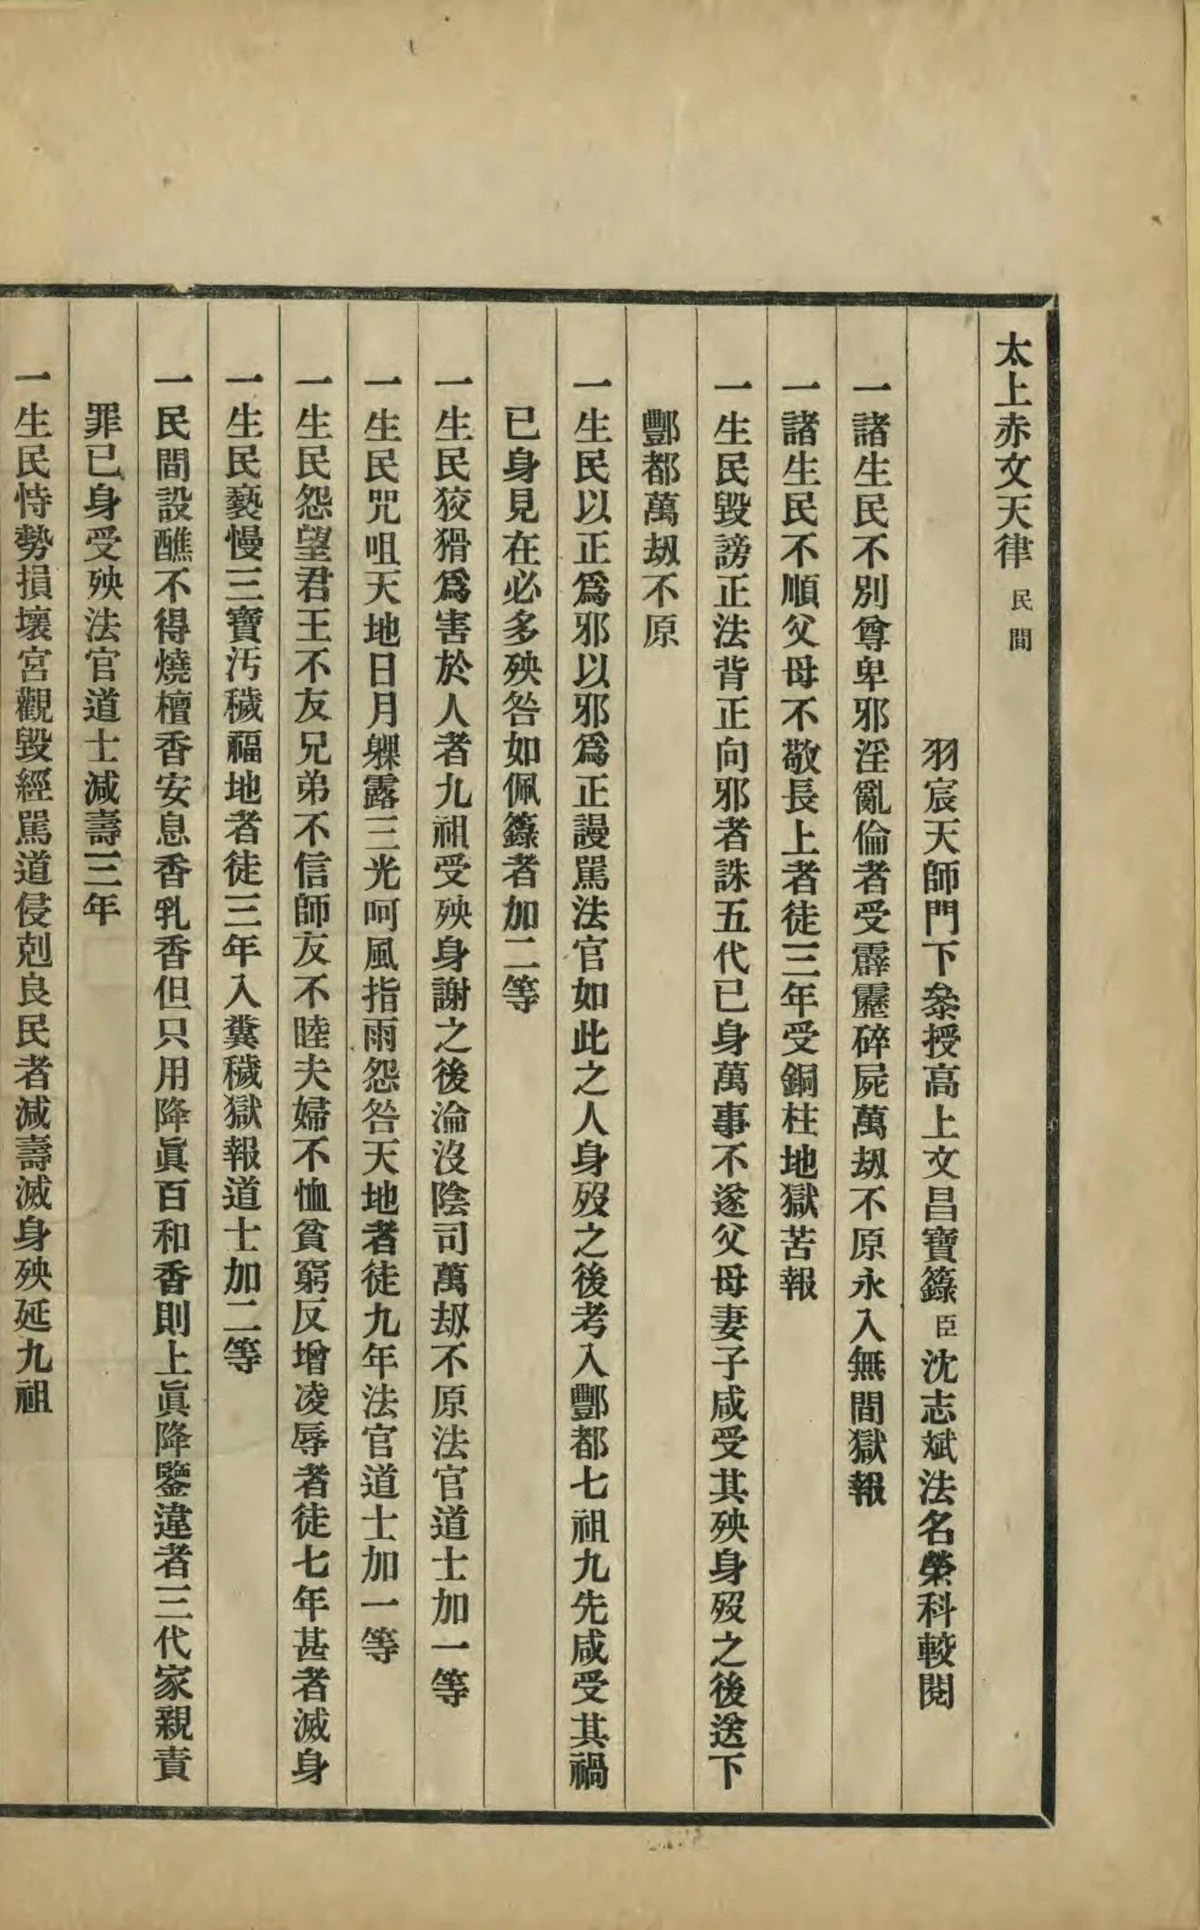 太上赤文天律 民間
羽宸天師門下叅授高上文昌寶籙臣沈志斌法名榮科較閱
一諸生民不別尊卑邪淫亂倫者受霹靂碎屍萬刼不原永入無間獄報
一諸生民不順父母不敬長上者徒三年受銅柱地獄苦報
一生民毀謗正法背正向邪者誅五代已身萬事不遂父母妻子咸受其殃身歿之後送下
酆都萬刼不原
一生民以正爲邪以邪爲正謾駡法官如此之人身歿之後考入酆都七祖九先咸受其禍
已身見在必多殃咎如佩籙者加二等
一生民狡猾爲害於人者九祖受殃身謝之後淪沒陰司萬刼不原法官道士加一等
一生民咒咀天地日月躶露三光呵風指雨怨咎天地者徒九年法官道士加一等
一生民怨望君王不友兄弟不信師友不睦夫婦不恤貧窮反增凌辱者徒七年甚者滅身
一生民褻慢三寶汚穢福地者徒三年入糞穢獄報道士加二等
一民間設醮不得燒檀香安息香乳香但只用降眞百和香則上眞降鑒違者三代家親責
罪已身受殃法官道士減壽三年
一生民恃勢損壞宮觀毀經駡道侵剋良民者減壽滅身殃延九祖